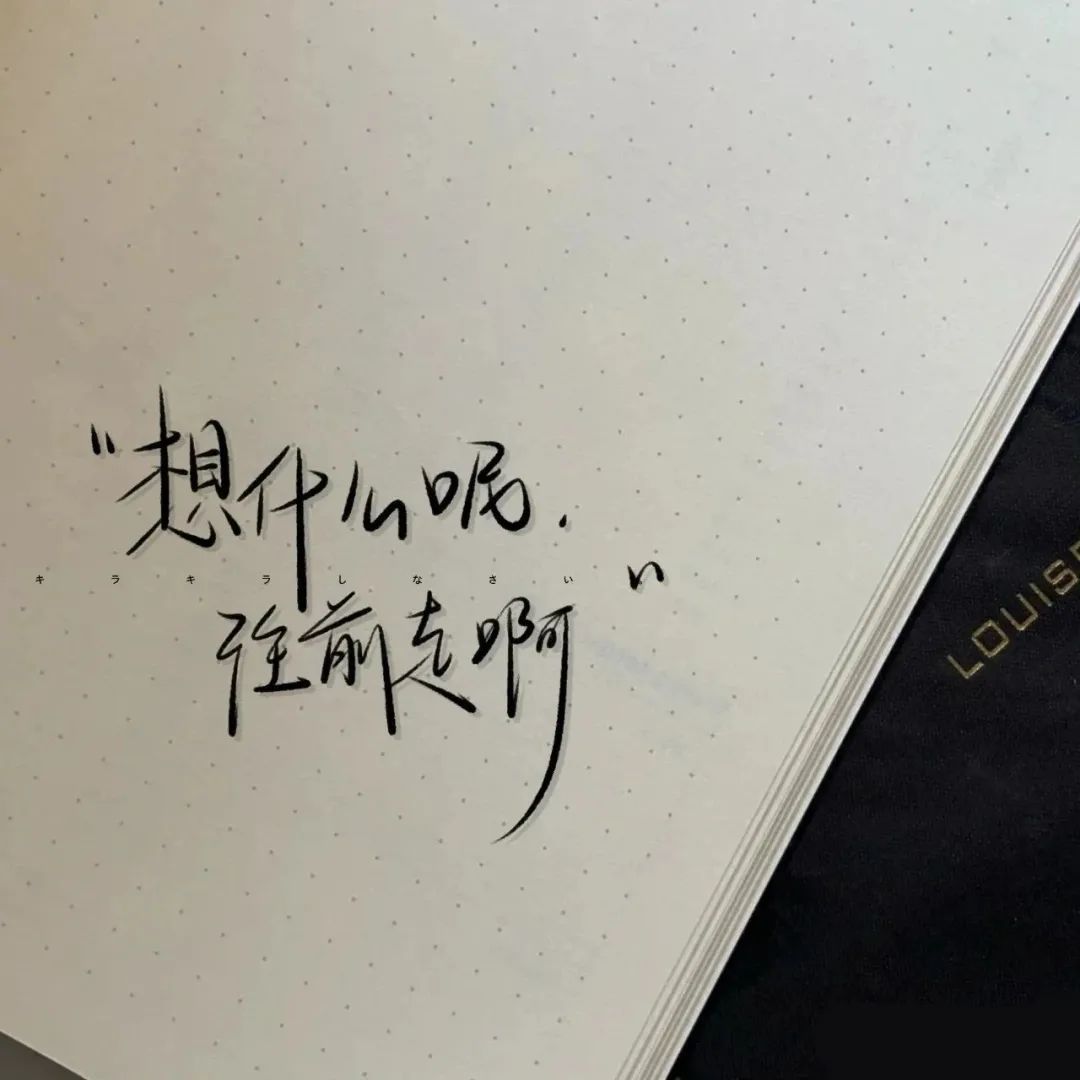 “想什么呢.
キラキラしなさい
往前走啊”
LOUISE